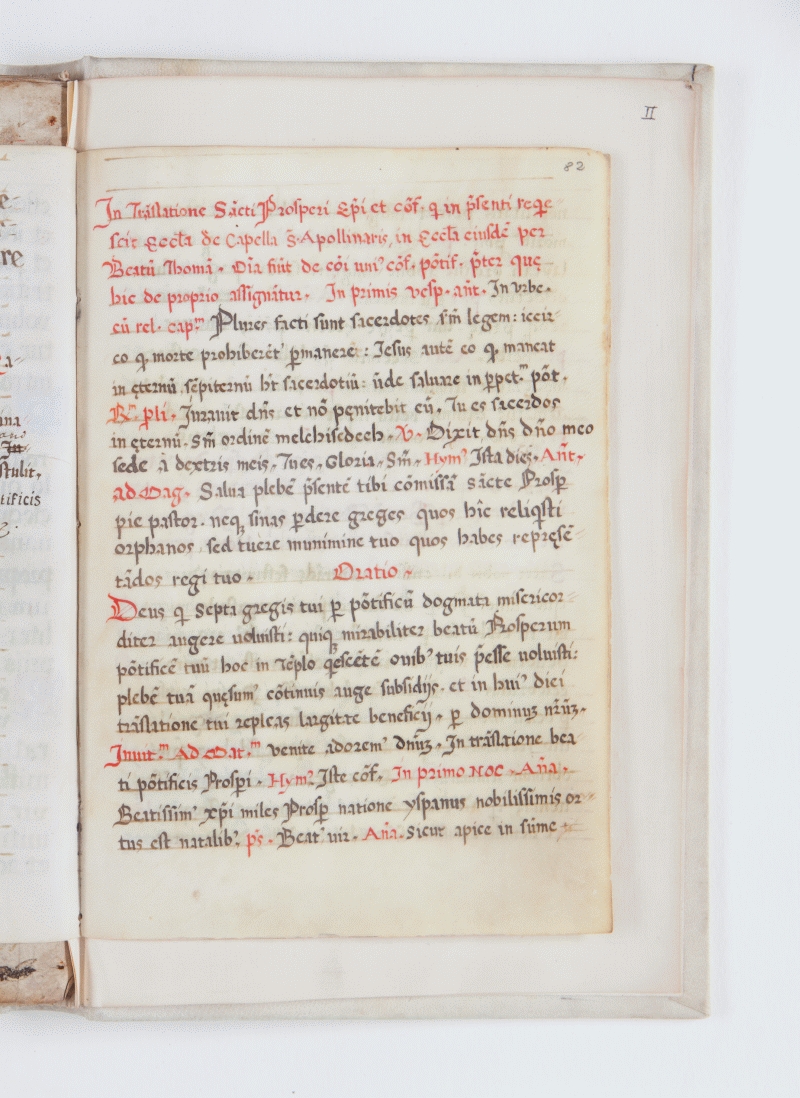 II
82
In Trāslatione Sācti Prosperi Ep̄i et cōf. q̄ in p̄senti reqe
scit Eccl̄a de Capella S̄. Apollinaris, in Eccl̄a eiusdē per
Beatū Thomā. Oīa fiūt de cōi uni⁹ cōf. pōtif. p̄ter quę
hic de proprio assignātur. In primis vesp. ānt. In vrbe.
cū rel. cap.ᵐ Plures facti sunt sacerdotes s̄m legem: iccir
co q. morte prohiberēt᷑ p̱manere: Iesus autē eo q. maneat
in ęternū sēpiternū h̄t sacerdotiū: ūde saluare in p̱pet.ᵐ pōt.
R̄. p̱li. Iurauit dn̄s et nō pęnitebit eū. Tu es sacerdos
in ęternū. s̄m ordinē melchisedech. V. Dixit dn̄s dn̄o meo
sede à dextris meis. Tu es. Gloria. S̄m. Hym⁹ Ista dies. Ant̄.
ad Mag. Salua plebē p̄sentē tibi cōmissā sācte Prosp̱
pie pastor. neq; sinas p̱dere greges quos hîc reliqsti
orphanos sed tuere munimine tuo quos habes repręsē
tādos regi tuo. Oratio
Deus q̄ septa gregis tui p̱ pōtificū dogmata misericor
diter augere uoluisti: quiq; mirabiliter beatū Prosperum
pōtificē tuū hoc in Tēplo q̄escētē ouib⁹ tuis p̄esse uoluisti:
plebē tuā quęsum⁹ cōtinuis auge subsidijs. et in hui⁹ diei
trāslatione tui repleas largitate beneficij. p̱ dominuʒ nr̄ūʒ.
Inuit.ᵐ Ad Mat.ᵐ venite adorem⁹ dn̄uʒ. In trāslatione bea
ti pōtificis Prosp̱i. Hym⁹ Iste cōf. In primo Noc. An̄a.
Beatissim⁹ xp̄i miles Prosp̱ natione yspanus nobilissimis or
tus est natalib⁹. p̄s. Beat⁹ uir. An̄a. Sicut apice in sūme